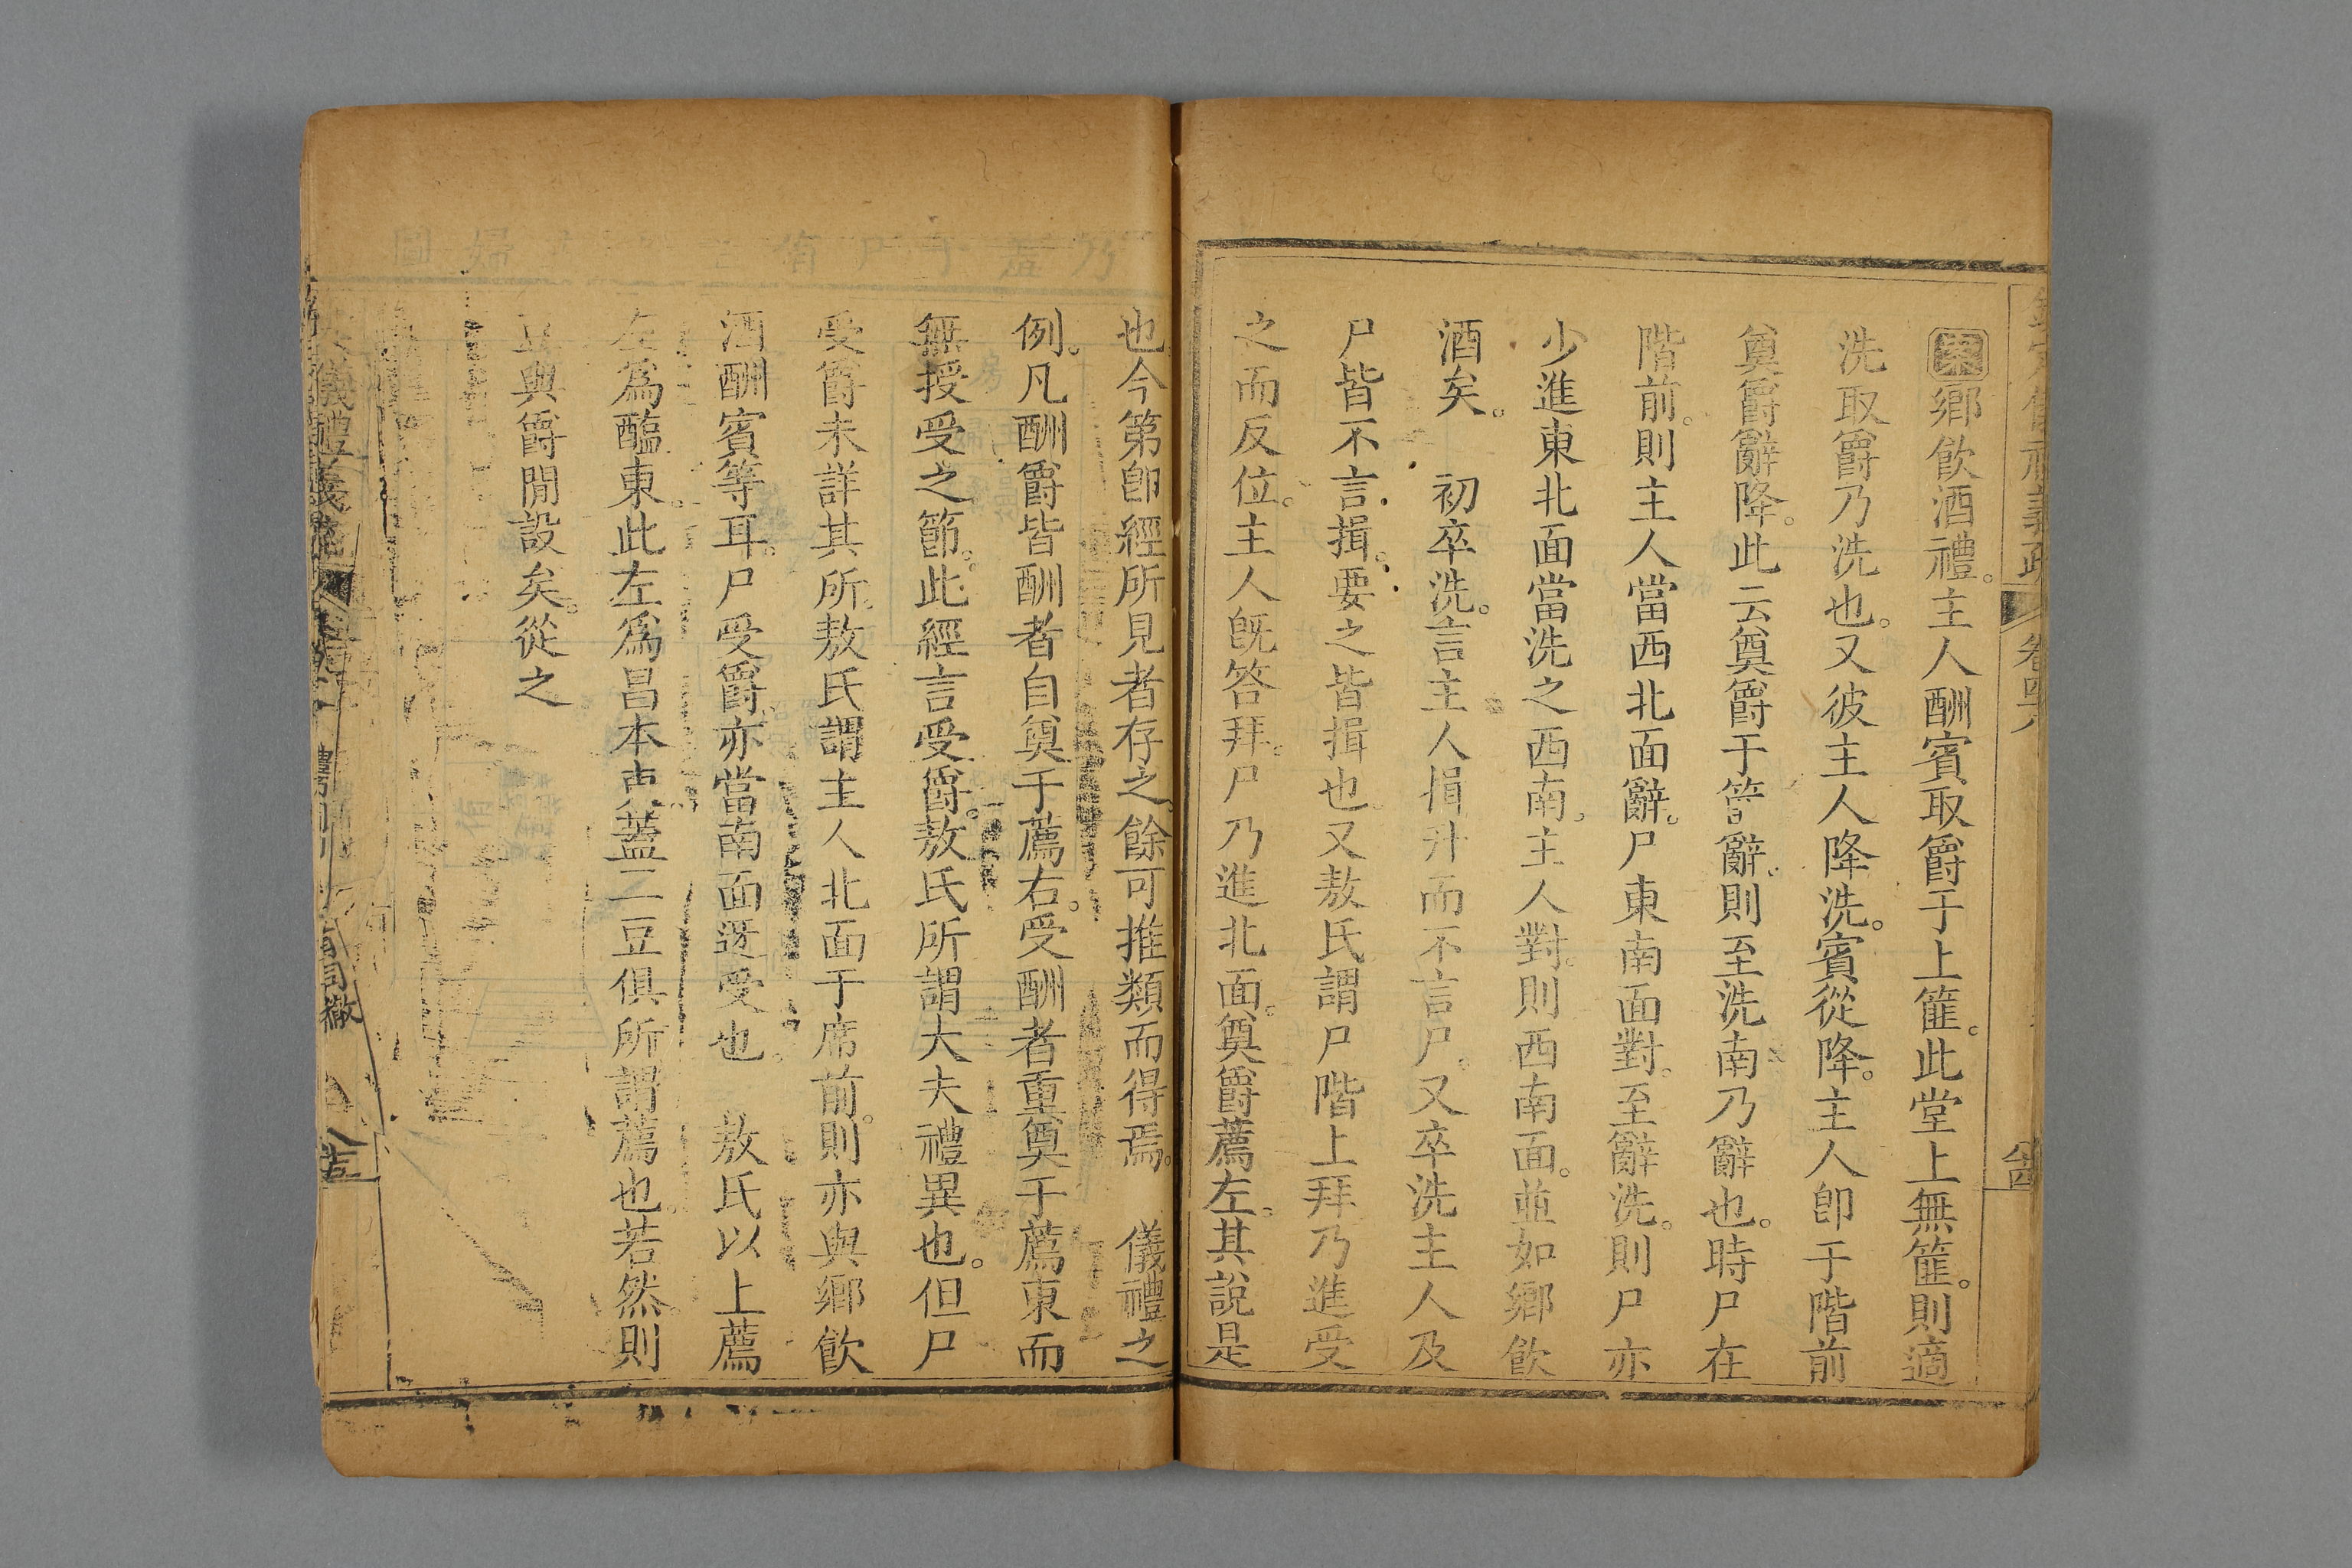 欽定儀禮義疏 卷四十八
案鄉飲酒禮。主人酬賓取爵于上篚。此堂上無篚。則適
洗取爵乃洗也。又彼主人降洗。賓從降。主人卽于階前
奠爵辭降。此云奠爵于篚辭。則至洗南乃辭也。時尸在
階前。則主人當西北面辭。尸東南面對。至辭洗。則尸亦
少進東北面當洗之西南。主人對。則西南面。並如鄉飲
酒矣。 初卒洗。言主人揖升而不言尸。又卒洗主人及
尸皆不言揖。要之皆揖也。又敖氏謂尸階上拜乃進受
之而反位。主人旣答拜。尸乃進北面。奠爵薦左。其說是
也今第卽經所見者存之。餘可推類而得焉。 儀禮之
例。凡酬爵皆酬者自奠于薦右。受酬者重奠于薦東而
無授受之節。此經言受爵。敖氏所謂大夫禮異也。但尸
受爵未詳其所。敖氏謂主人北面于席前。則亦與鄉飲
酒酬賓等耳。尸受爵亦當南面逆受也。 敖氏以上薦
左爲醢東。此左爲昌本東。蓋二豆俱所謂薦也。若然。則
豆與爵閒設矣。從之
有司徹